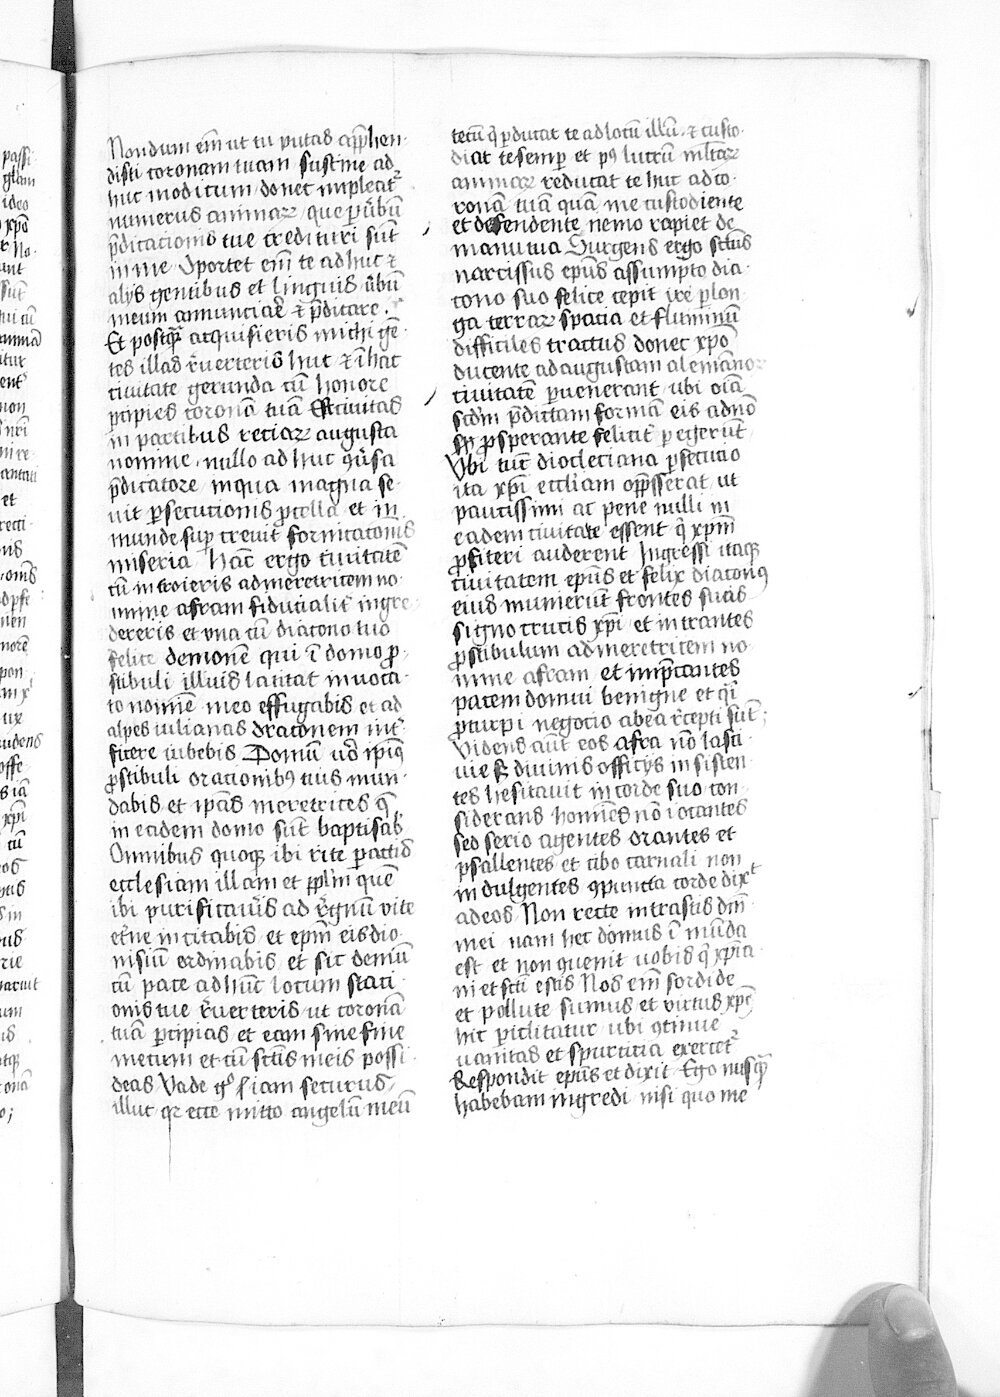 Nondum em̄ ut tu putas app̄hen
disti coronam tuam sustine ad
huc modicum donec impleat᷑
numerus animaꝝ que p̱ ūbū
p̄dicationis tue credituri sūt
in me Oportet em̄ te adhuc ⁊
alijs gentibus et linguis ūbū
meum annunciar̄ ⁊ p̄dicare.
Et postq̄ꝫ acquisieris michi gē
tes illas r̄verteris huc ⁊ ī hac
civitate gerunda cū honore
p̱cipies coronā tuā Est civitas
in partibus reciaꝝ augusta
nomine nullo adhuc ꝯv̄sa
p̄dicatore in qua magna se
vit p̱secutionis ꝓcella et in
munde sup̱ crevit fornicationis
miseria Hāc ergo civitatē
cū introieris ad meretricem no
mine afram fiducialit̄ ingre
dereris et una cū diacono tuo
felice demonē qui ī domo ꝓ
stibuli illius latitat invoca
to nomīe meo effugabis et ad
alpes iulianas draconem int̄
ficere iubebis Domū v̄o ip̄iꝰ
ꝓstibuli orationibꝰ tuis mun
dabis et ip̄as meretrices q̄
in eadem domo sūt baptisab̄
Omnibus quoqꝫ ibi rite p̱actis
ecclesiam illam et pp̄lm quē
ibi purificav̄is ad r̄gnū vite
et̄ne incitabis et ep̄m eis dio
nisiū ordinabis et sic demū
cū pace adhūc locum stati
onis tue r̄verteris ut coronā
tuā p̱cipias et eam sine fine
mecum et cū sc̄tis meis possi
deas Vade gͦ iam securus
illuc qꝛ ecce mitto angelū meū
tecū q̄ p̱ducat te ad locū illū ⁊ custo
diat te semp̱ et pꝰ lucrū m̄ltaꝝ
animaꝝ reducat te huc ad co
ronā tuā quam me custodiente
et defendente nemo rapiet de
manu tua Surgens ergo sc̄tus
narcissus ep̄us assumpto dia
cono suo felice cepit ire p̱ lon
ga terraꝝ spacia et fluminū
difficiles tractus donec xp̄o
ducente ad augustam alemānoꝝ
civitatē p̱venerant ubi oīa
scd̄m p̄dictam formā eis adnō
ꝓsperante felicit̄ p̱egerūt
Ubi tūc diocleciana p̱secutio
ita xp̄i eccl̄iam opp̄sserat ut
paucissimi ac pene nulli in
eadem civitate essent q̄ xp̄m
ꝓfiteri auderent Ingressi itaqꝫ
civitatem ep̄us et felix diaconꝰ
eius munierūt frontes suas
signo crucis xp̄i et intrantes
ꝓstibulum ad meretricem no
mine afram et imp̄cantes
pacem domui benigne et q̄i
ꝓ turpi negocio ab ea r̄cepti sūt;
Videns aūt eos afra nō lasci
vie ⁊ divinis officijs insisten
tes hesitavit in corde suo con
siderans homīes nō iocantes
sed serio agentes orantes et
psallentes et cibo carnali non
indulgentes ꝯpuncta corde dixᵗ
ad eos Non recte intrastis dn̄i
mei nam hec domus ī mūda
est et non ꝯvenit vobis q̄ xp̄ia
ni et sc̄ti estis Nos em̄ sordide
et pollute sumus et virtus xp̄i
hic p̱iclitatur ubi ꝯtinue
vanitas et spurcicia exercet᷑
Respondit ep̄us et dixit Ego nusq̄ꝫ
habebam ingredi nisi quo me